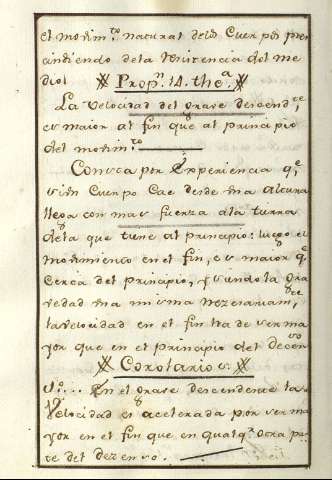 el movim.to natural delos Cuerpos pres
cindiendo dela resistencia del me
dio. Prop.n 14. the.a
La velocidad del grave descend.te
es maior al fin que al principio
del movim.to
Consta por Experiencia q.e
si un Cuerpo Cae desde una altura
llega con mas fuerza ala tierra
dela que tiene al principio: luego el
movimiento en el fin, es maior q.e
Cerca del principio, y siendo la gra
vedad una misma nezesariam.te
la velocidad en el fin ha de ser ma
yor que en el principio del decenso
Corolarios.
1.o ... En el grave descendente la
Velocidad es acelerada por ser ma
yor en el fin que en qualq.a otra pa
te del dezenso.